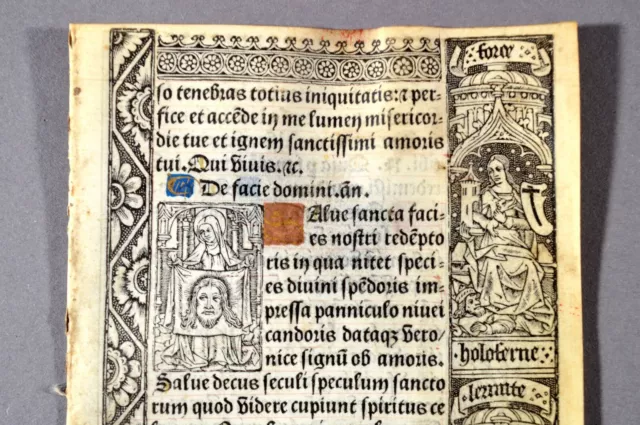 so tenebras totius iniquitatis: ⁊ per=
fice et accēde in me lumen misericor=
die tue et ignem sanctissimi amoris
tui. Qui viuis. ⁊c.
De facie domini. añ.
Alue sancta faci
es nostri redēpto
ris in qua nitet speci
es diuini spēdoris im=
pressa panniculo niuei
candoris dataqꝫ vero
nice signū ob amoris.
Salue decus seculi speculum sancto
rum quod videre cupiunt spiritus ce
force
holoferne